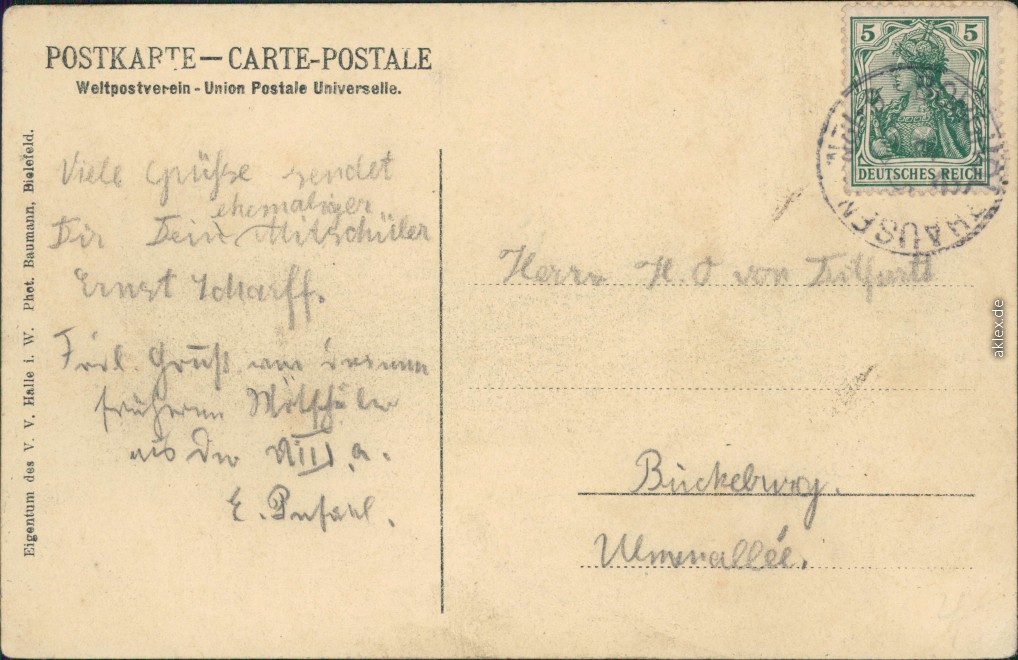 POSTKARTE — CARTE-POSTALE
Weltpostverein - Union Postale Universelle.
Eigentum des V. V. Halle i. W. Phot. Baumann, Bielefeld.
Viele Grüße sendet
ehemaliger
Dir Dein Mitschüler
Ernst Scharff.
Frdl. Gruß von deinem
früheren Mitschüler
aus der VIII a.
E.
5 5
DEUTSCHES REICH
HAUSEN
Herrn H. O von Ditfurth
Bückeburg.
Ulmenallée.
aklex.de